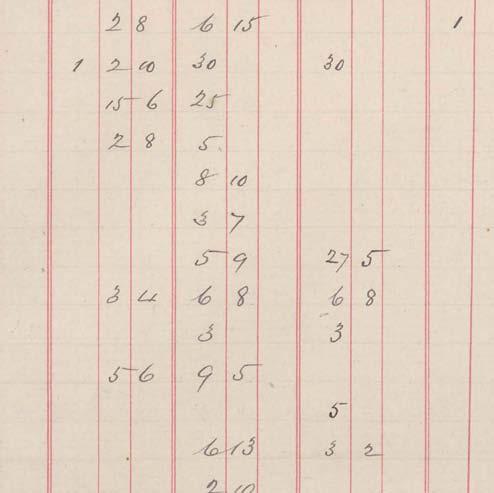 2 8 6 15 1
1 2 10 30 30
15 6 25
2 8 5
8 10
3 7
5 9 27 5
3 4 6 8 6 8
3 3
5 6 9 5
5
6 13 3 2
2 10